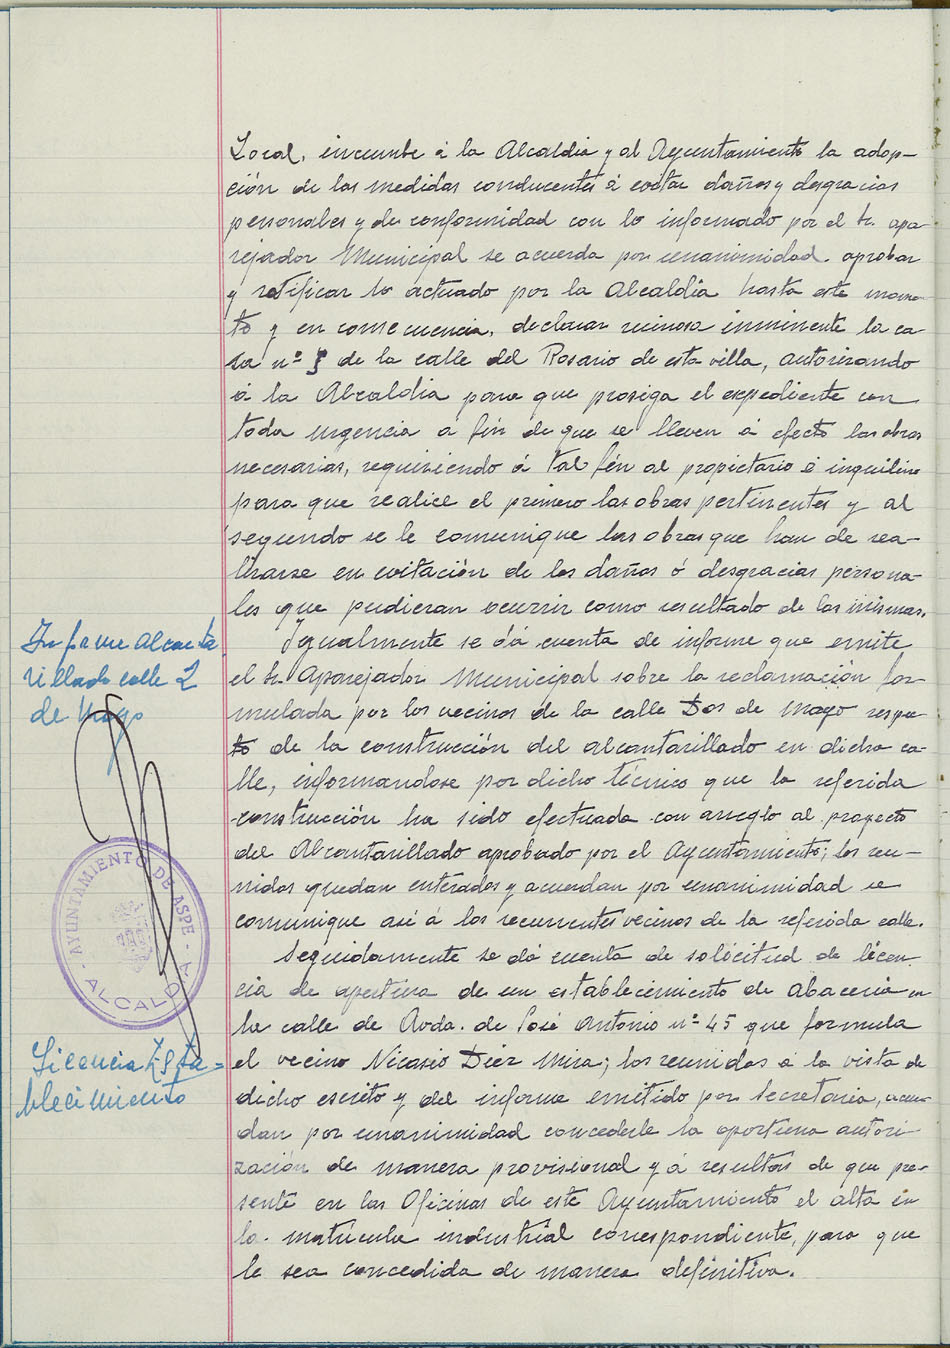 Local, incumbe á la Alcaldia y al Ayuntamiento la adop-
ción de las medidas conducentes á evitar daños y desgracias
personales y de conformidad con lo informado por el Sr. apa-
rejador Municipal se acuerda por unanimidad. aprobar
y ratificar lo actuado por la Alcaldia hasta este momen-
to y en consecuencia, declarar ruinosa inminente la ca-
sa nº 5 de la calle del Rosario de esta villa, autorizando
á la Alcaldia para que prosiga el expediente con
toda urgencia a fin de que se lleven á efecto las obras
necesarias, requiriendo á tal fin al propietario é inquilino
para que realice el primero las obras pertinentes y al
segundo se le comunique las obras que han de rea-
lizarse en evitación de los daños ó desgracias persona-
les que pudieran ocurrir como resultado de las mismas.
Informe alcanta
rillado calle 2
de Mayo
Igualmente se dá cuenta de informe que emite
el Sr. Aparejador Municipal sobre la reclamación for-
mulada por los vecinos de la calle Dos de Mayo respec-
to de la construcción del alcantarillado en dicha ca-
lle, informandose por dicho técnico que la referida
construcción ha sido efectuada con arreglo al proyecto
del Alcantarillado aprobado por el Ayuntamiento; los reu-
nidos quedan enterados y acuerdan por unanimidad se
comunique asi á los recurrentes vecinos de la referida calle.
AYUNTAMIENTO DE ASPE - ALCALDIA
Licencia Esta=
blecimiento
Seguidamente se dá cuenta de solicitud de licen-
cia de apertura de un establecimiento de abaceria en
la calle de Avda. de José Antonio nº 45 que formula
el vecino Nicasio Diez Mira; los reunidos a la vista de
dicho escrito y del informe emitido por Secretaria, acuer-
dan por unanimidad concederle la oportuna autori-
zación de manera provisional y á resultas de que pre-
sente en las Oficinas de este Ayuntamiento el alta en
la matrícula industrial correspondiente, para que
le sea concedida de manera definitiva.